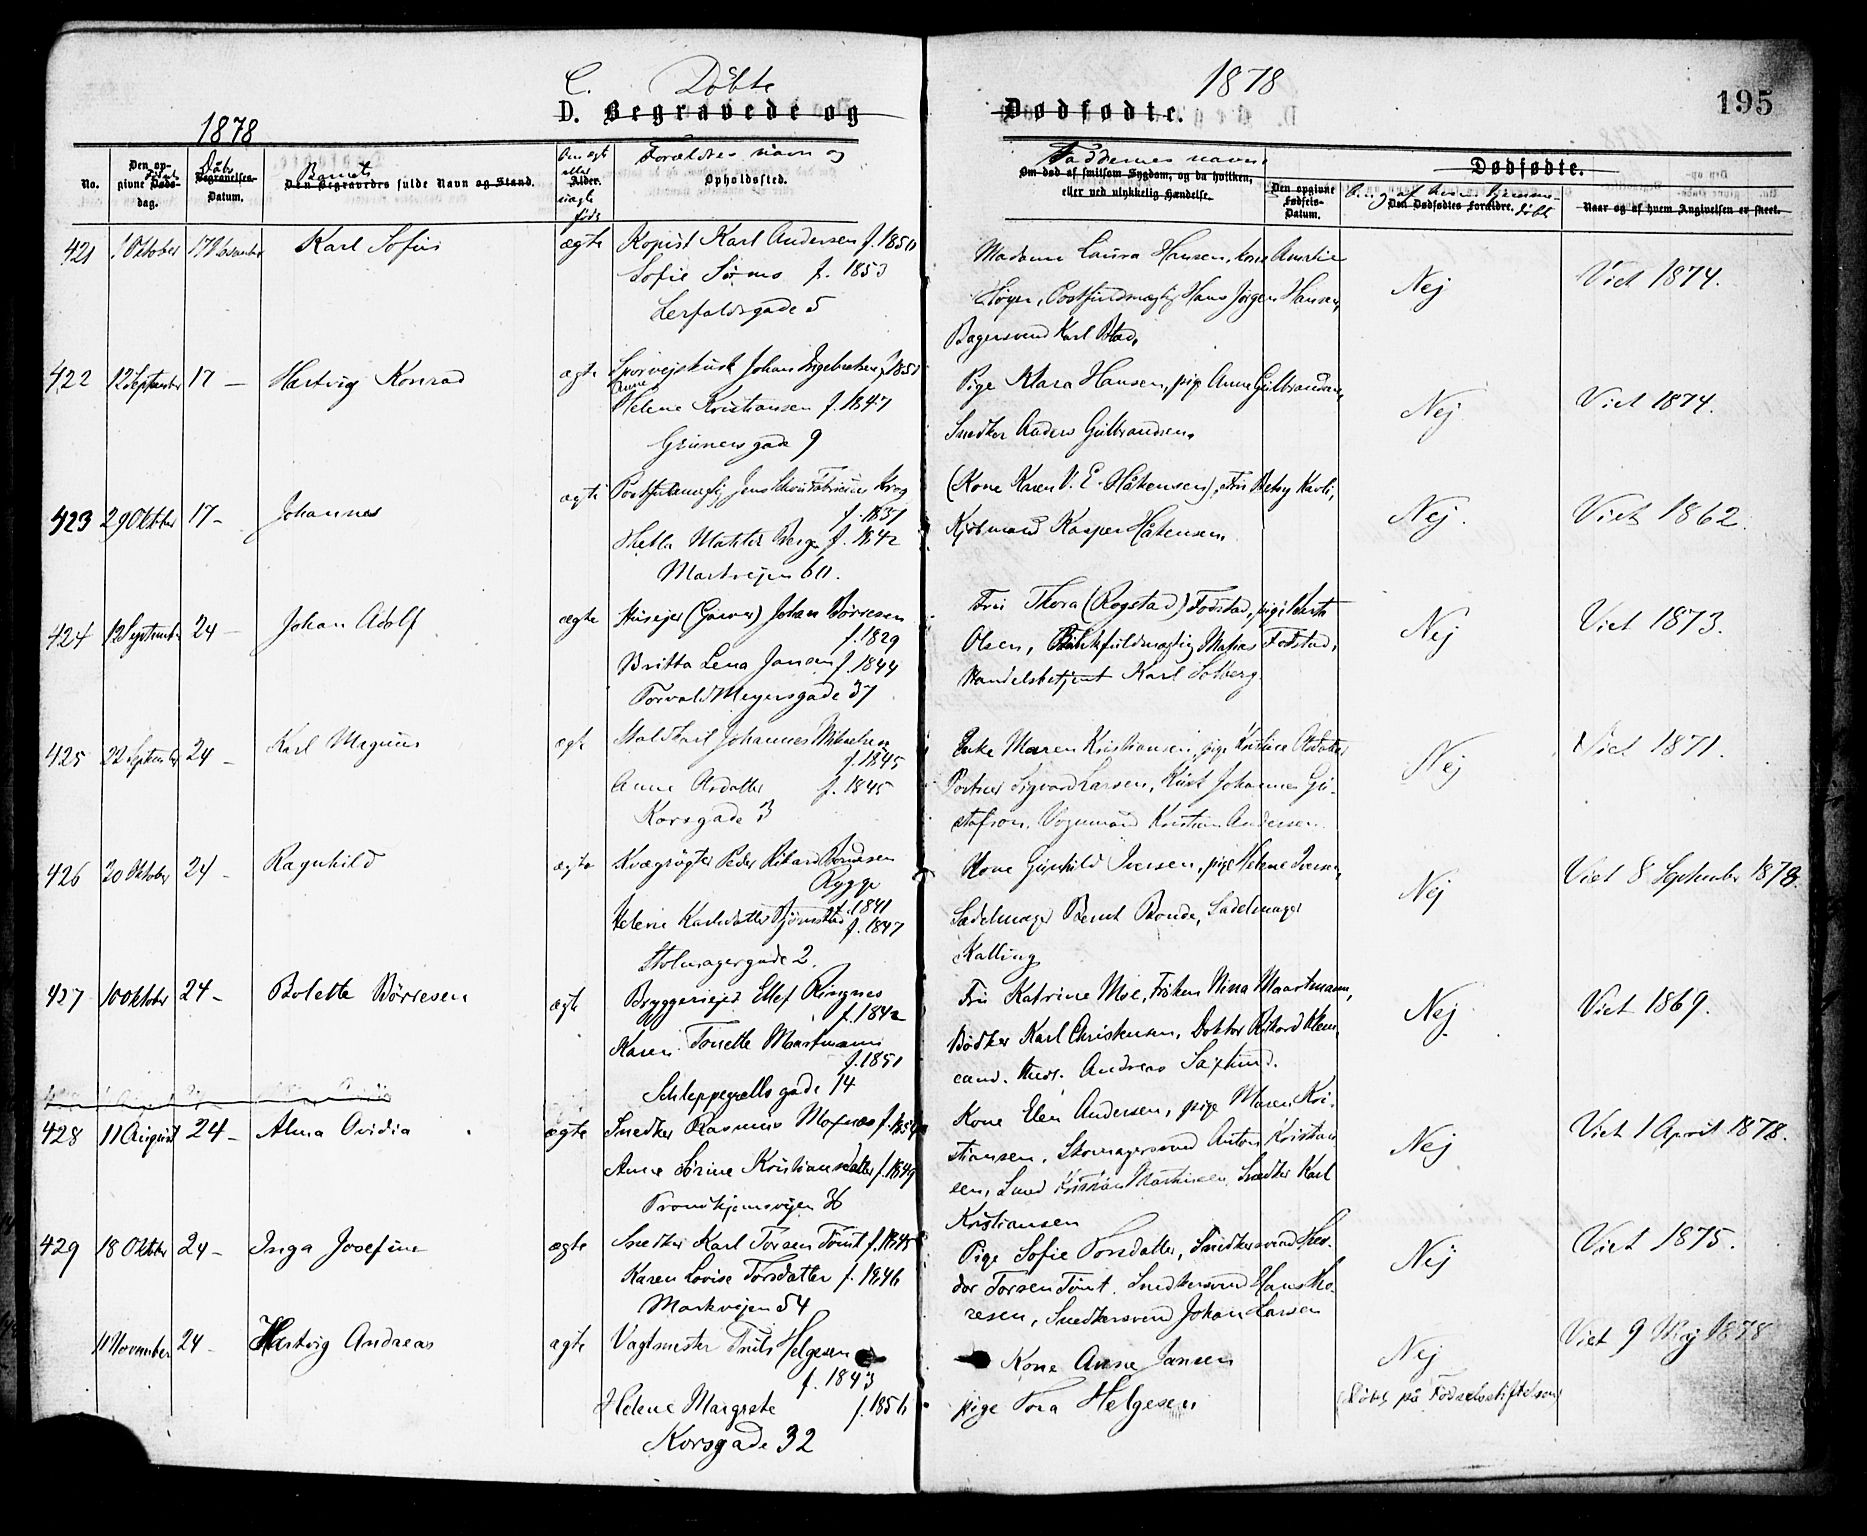 1878
C. Döbte
D. Begravede og
1878
Dødfødte.
195
No.
Den opgivne Føds- Dødsdag.
Dåbs Begravelses- Datum.
Barnets
Den Begravedes fulde Navn og Stand.
Om ægte eller uægte født
Alder.
Forældres navn og
Opholdssted.
Faddernes navne
Om død af smitsom Sygdom, og da hvilken, eller ved ulykkelig Hændelse.
Dødfødte.
Den opgivne Fødsels-Datum.
Den Dødfødtes Forældre.
Naar og af hvem Angivelsen er skeet.
421 Oktober 17 November Karl Sofus ægte Kopist Karl Andersen f. 1850
Sofie f. 1853
Herfoldsgade 5
Madame Laura Hansen, kone Amalie
Höyer, Postfuldmægtig Hans Jörgen Hansen,
Bagersvend Karl
Nej Viet 1874.
422 12 September 17 — Hartvig Konrad ægte Sporvejskusk Johan Ingebretsen f. 1851
Anne
Helene Kristiansen f. 1847
Grünersgade 9
Pige Klara Hansen, pige Anne Gulbrandsen,
Snedker Anders Gulbrandsen.
Nej Viet 1874.
423 29 Oktober 17 - Johannes ægte Postfuldmægtig Jens Fabricius Krog
f. 1837
Thekla Matilde Berge f. 1842
Markvejen 60.
(Kone Karen V. E. Håkensen), Fru Betsy Karli,
Kjöbmand Kasper Håkensen.
Nej. Viet 1862.
424 12 September 24 — Johan Adolf ægte Husejer (Garver) Johan Börresen
f. 1829
Britta Lena Jansen f. 1844
Torvald Meyersgade 37
Fru Thora (Rogstad) Fodstad, pige
Olsen, Bankfuldmægtig Matias Fodstad,
Handelsbetjent Karl Solberg
Nej Viet 1873.
425 22 September 24 - Karl Magnus ægte Staldkarl Johannes Mikaelsen
f. 1845
Anne Asdatter f. 1845
Korsgade 3
Enke Maren Kristiansen, pige Kristine
Portner Sigvard Larsen, Kusk Johannes Gu-
stafson. Vognmand Kristian Andersen.
Nej Viet 1871.
426 20 Oktober 24 - Ragnhild ægte Kvægrögter Peder Rikard
Rygge
f. 1841
Helene Karlsdatter Björnstad f. 1847
Stolmagergade 2.
Kone Gunhild Iversen, pige Helene Iversen,
Sadelmager Bernt Bonde, Sadelmager
Kalling
Nej Viet 8 September 1878.
427 10 Oktober 24 - Bolette Börresen ægte Bryggeriejer Ellef Ringnes
f. 1842
Karen Tonette Martmann
f. 1851
Schleppegrells gade 14
Fru Katrine Moe, Fröken Nina Maartmann,
Bödker Karl Christensen, Doktor Rikard
cand. theol. Andreas
Nej. Viet 1869.
428 11 August 24 - Alma Ovidia ægte Snedker Rasmus Mofnæs f. 1854
Anne Sörine Kristiansdatter f. 1849
Trondhjemsvejen
Kone Elen Andersen, pige Maren Kri-
stiansen, Skomagersvend Anton Kristian
sen, Smed Kristian Martinsen, Snedker Karl
Kristiansen
Nej Viet 1 April 1878.
429 18 Oktober 24 - Inga Josefine ægte Snedker Karl Torsen Tömt f. 1845
Karen Lovise Torsdatter f. 1846
Markvejen 54
Pige Sofie Torsdatter, Snedkersvend
dor Torsen Tömt. Snedkersvend Hans
resen, Snedkersvend Johan Larsen
Nej Viet 1875.
11 November 24 - Hartvig Andreas ægte Vagtmester Truls Helgesen
f. 1843
Helene Margrete f. 1856
Korsgade 32
Kone Anne Jansen
pige Tora Helgesen
Nej
(Döbt på Födselsstiftelsen)
Viet 9 Maj 1878